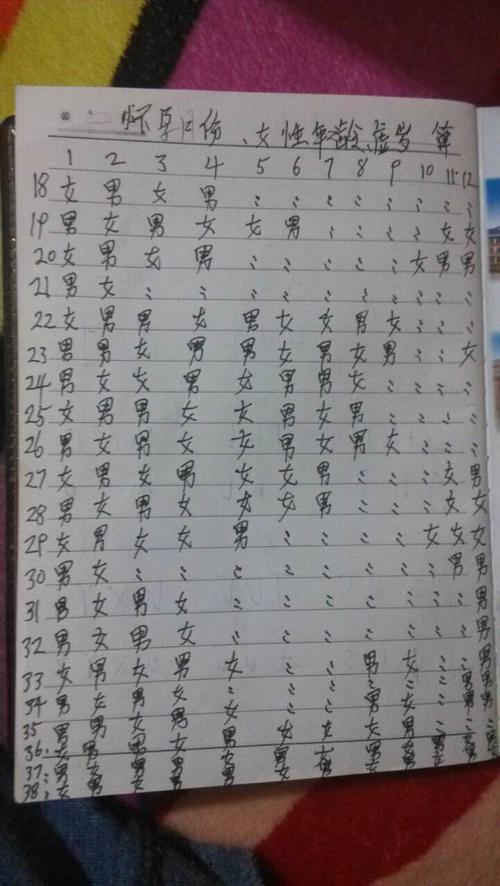 怀孕月份、女性年龄虚岁 算
1 2 3 4 5 6 7 8 9 10 11 12
18 女 男 女 男 ː ː ː ː ː ː ː ː
19 男 女 男 女 女 男 ː ː ː ː 女 女
20 女 男 女 男 ː ː ː ː ː 女 男 男
21 男 女 ː ː ː ː ː ː ː ː ː ː
22 女 男 男 女 男 女 女 男 女 ː ː ː
23 男 男 女 男 男 女 男 女 男 ː ː 女
24 男 女 女 男 女 男 男 女 ː ː ː ː
25 女 男 男 女 女 男 女 男 ː ː ː ː
26 男 女 男 女 女 男 女 男 女 ː ː ː
27 女 男 女 男 女 女 男 ː ː ː 女 男
28 男 女 男 女 女 女 男 ː ː ː 女 女
29 女 男 女 女 男 ː ː ː ː 女 女 女
30 男 女 ː ː ː ː ː ː ː ː 男 男
31 男 女 男 女 ː ː ː ː ː ː ː 男
32 男 女 男 女 ː ː ː ː ː ː ː 男
33 女 男 女 男 女 ː ː 男 女 ː ː 男
34 男 女 男 女 ː ː ː 男 女 ː 男 男
35 男 男 女 男 女 ː ː
36 女 男 男 女 男 女 女 女 男
37 男 女 男 男 男 男 男 男 男
38 女 男 女 男 男 女